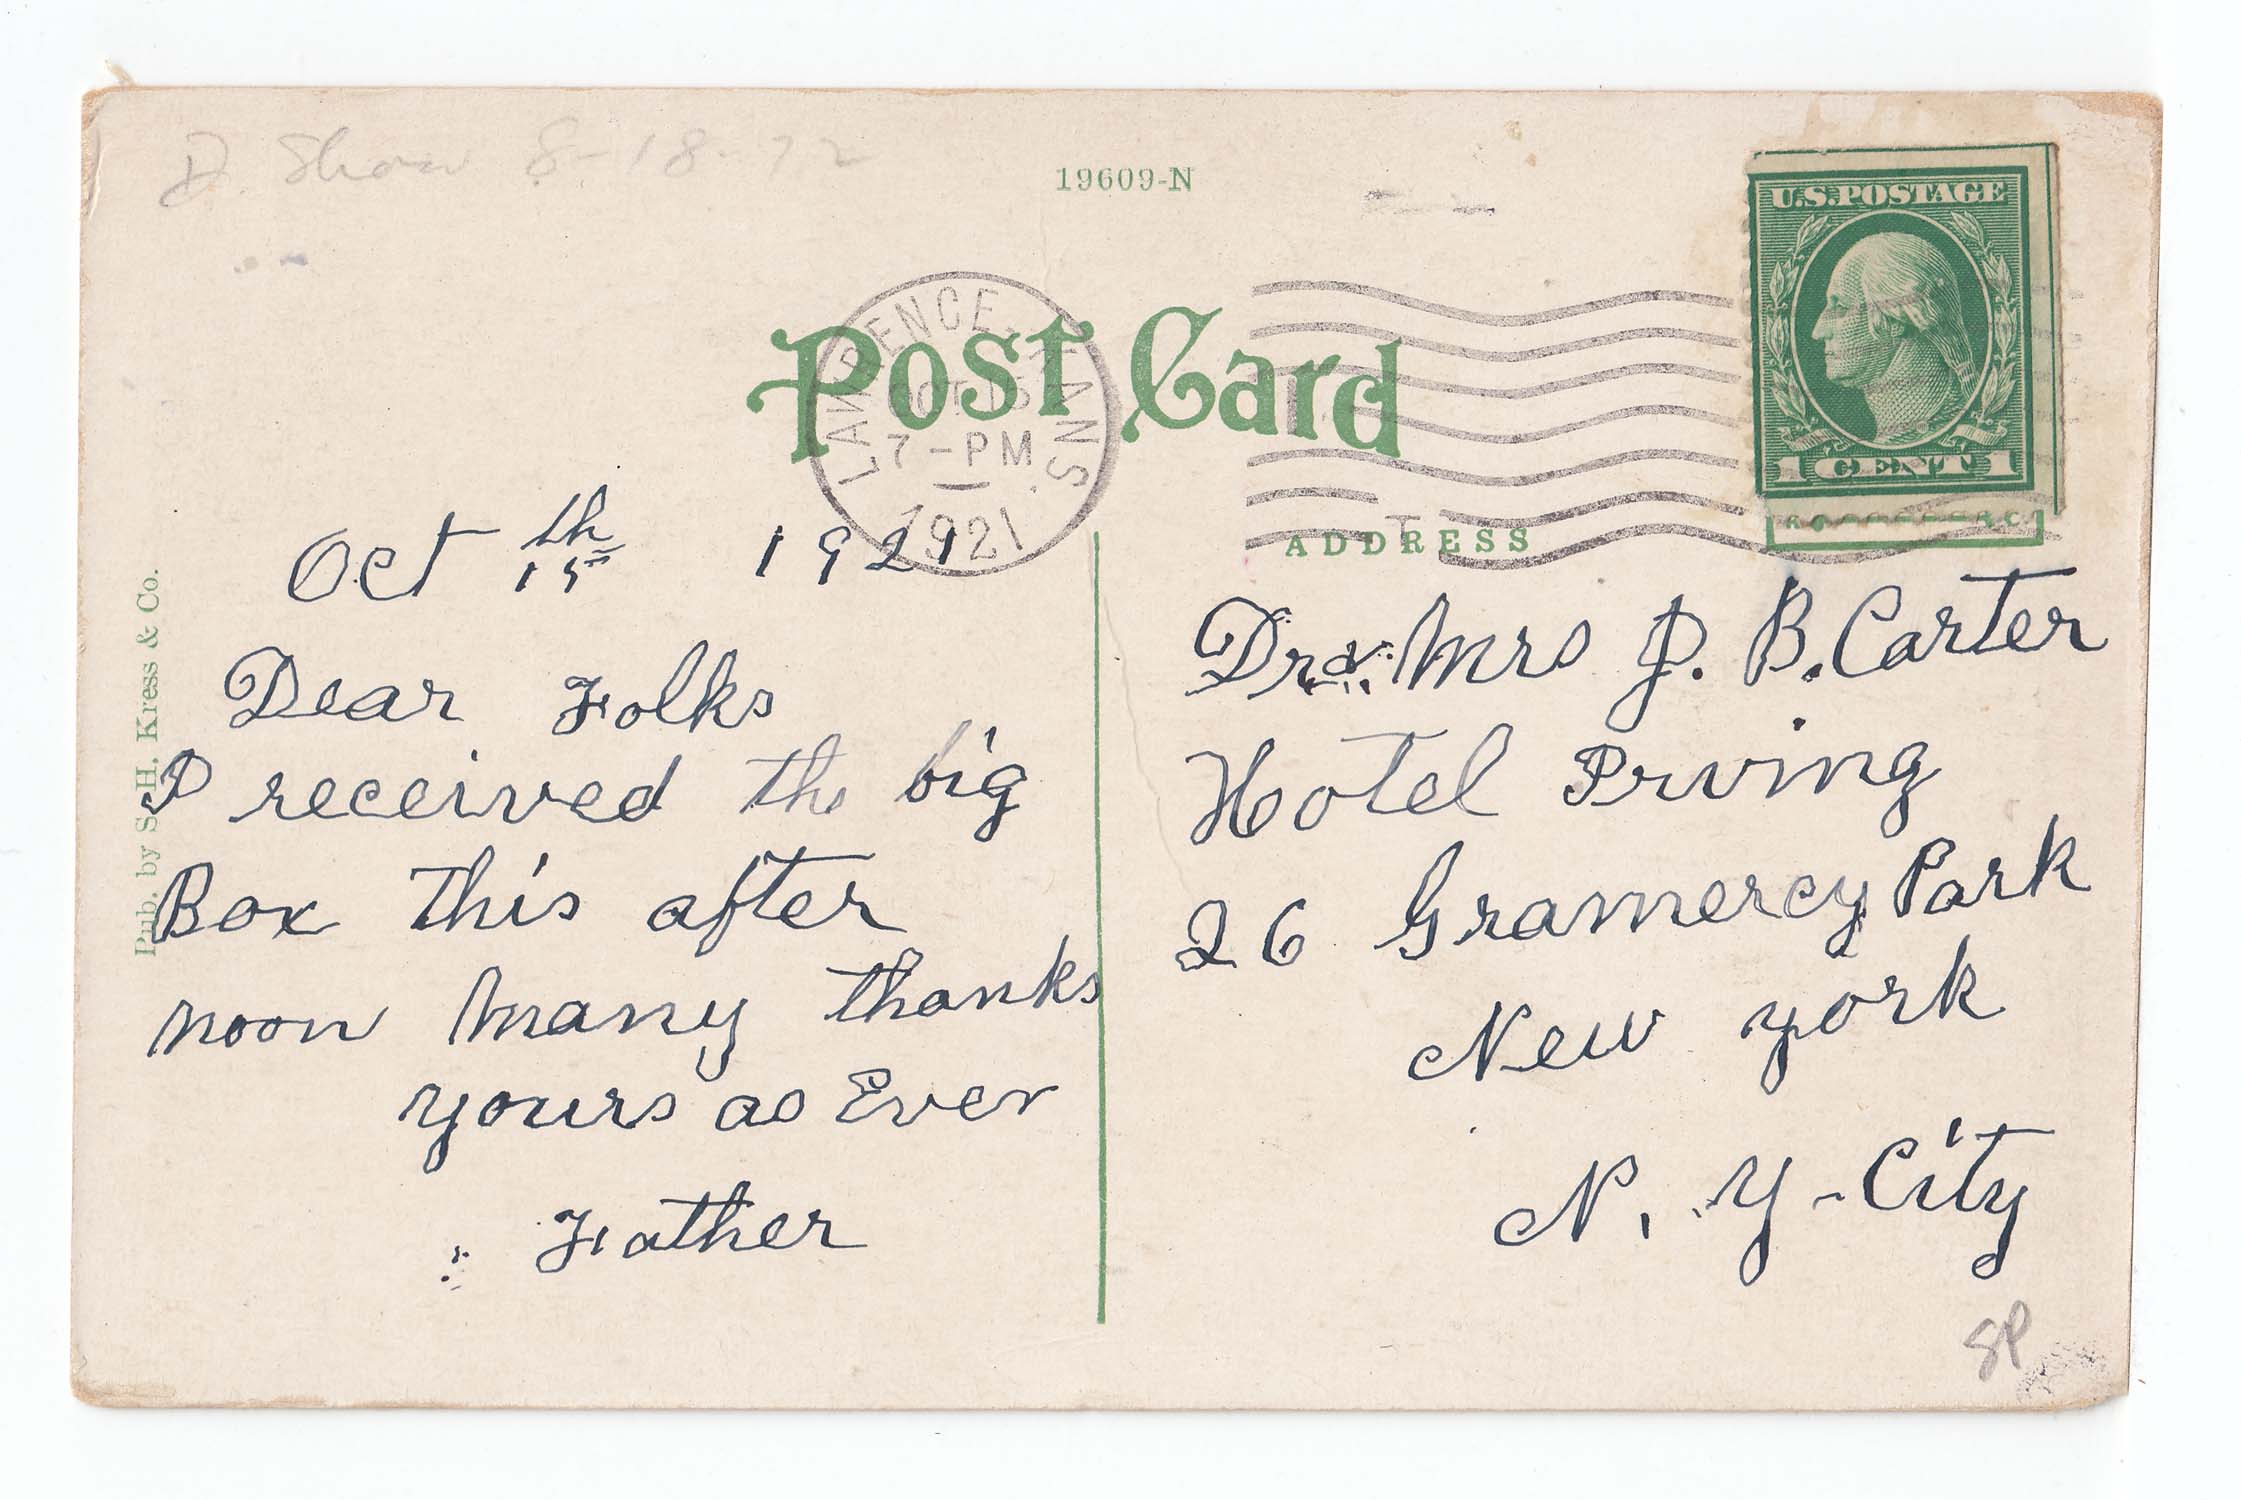 D. Shaw 8-18-72
19609-N
U.S. POSTAGE
1 CENT 1
LAWRENCE, KANS.
OCT 15
7-PM
1921
Post Card
ADDRESS
Pub. by S. H. Kress & Co.
Oct 15th 1921
Dear Folks
I received the big
Box this after
noon many thanks
yours as Ever
Father
Dr & Mrs J. B. Carter
Hotel Irving
26 Gramercy Park
New york
N. Y - City
SP